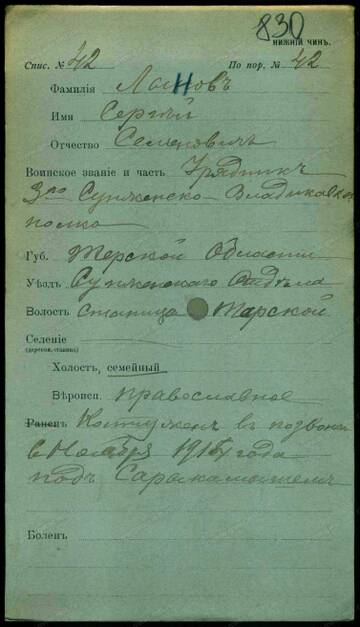 830
НИЖНІЙ ЧИНЪ.
Спис. № 42 По пор. № 42
Фамилія
Имя Сергѣй
Отчество Семеновичъ
Воинское званіе и часть Урядникъ
3го Сунженско-Владикавказ
полка
Губ. Терской Области
Уѣздъ Сунженскаго Отдѣла
Волость станица Тарской
Селеніе
(деревня, станица)
Холость, семейный
Вѣроисп. православное
Раненъ Контуженъ въ позвон
6 Ноября года
подъ Сарыкамышемъ
Боленъ